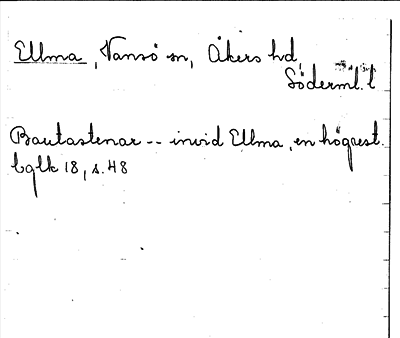 Ellma, Vansö sn, Åkers hd,
Söderml. l
Bautastenar -- invid Ellma, en högrest.
bglk 18, s. 48